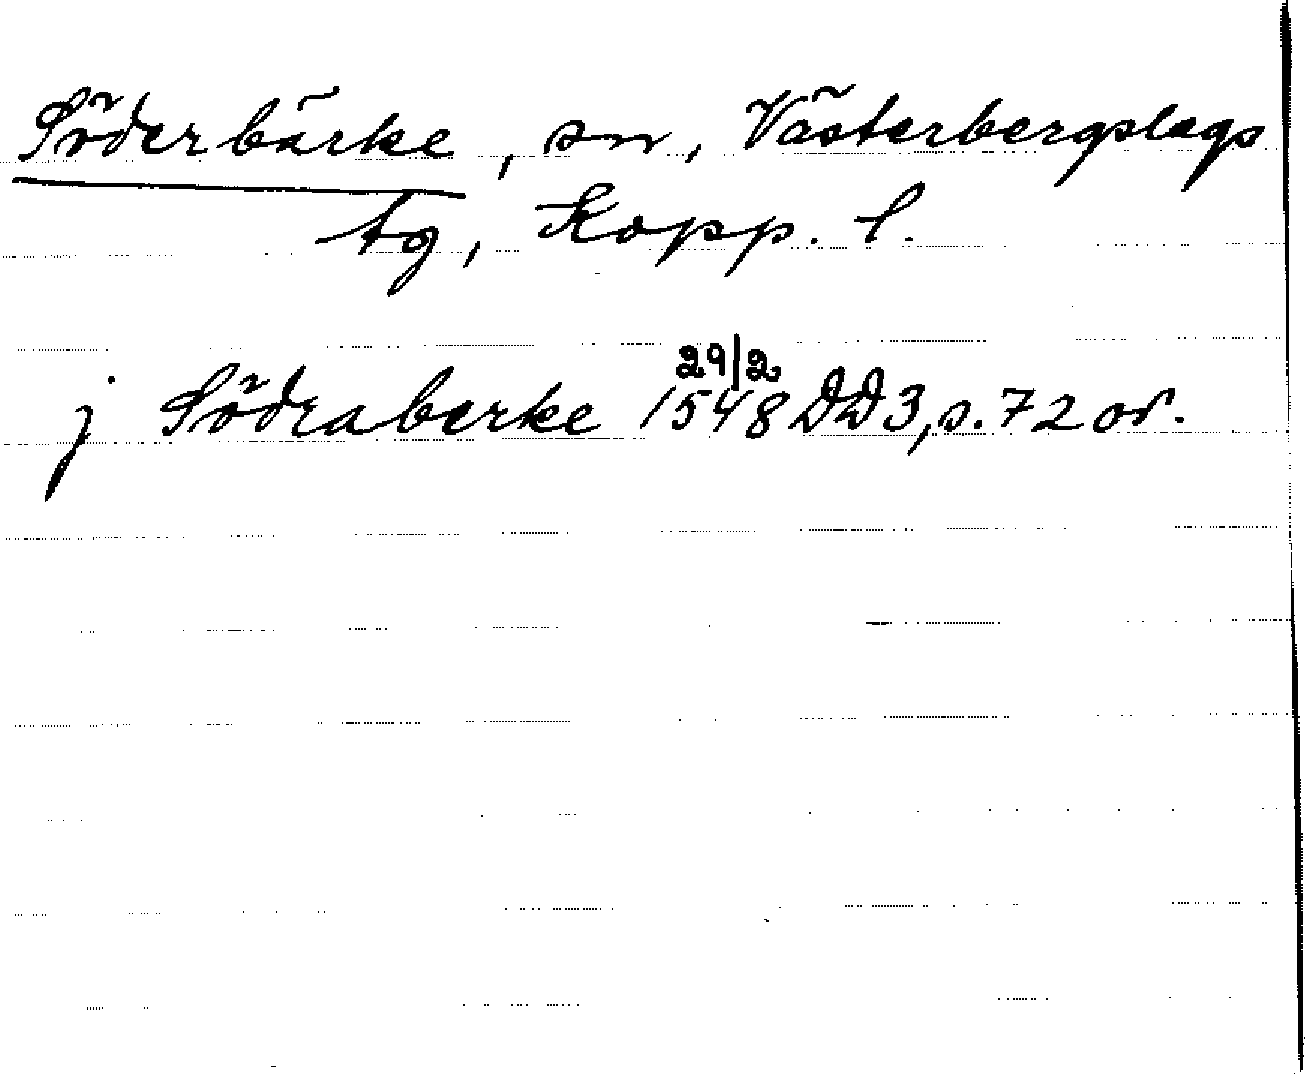 Söderbärke, sn, Västerbergslags
tg, Kopp. l.
j Södraberke 29/2 1548 DD3, s. 72 or.